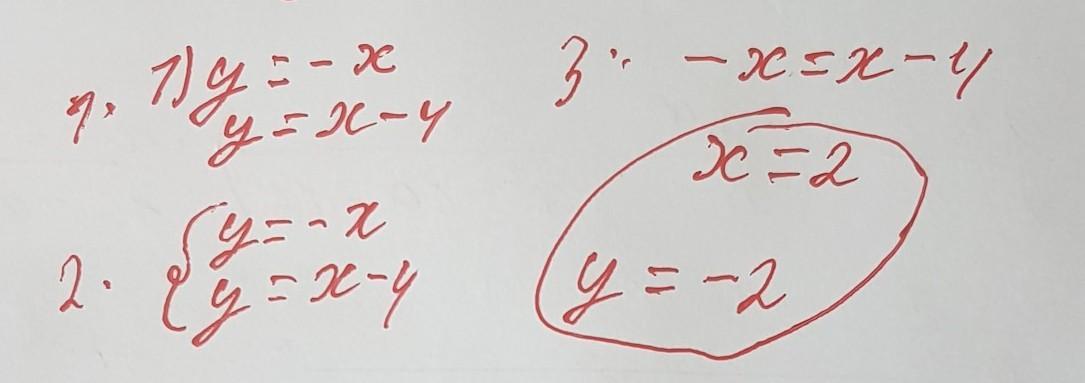 1. 1) y = - x
y = x - 4
2. { y = - x
y = x - 4
3. - x = x - 4
x = 2
y = - 2